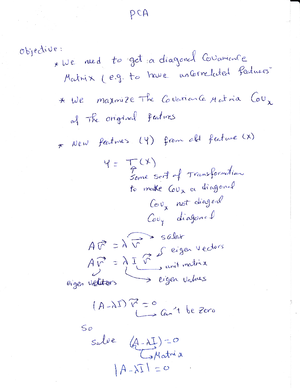 PCA
Objective:
* We need to get a diagonal Covariance
Matrix (e.g. to have uncorrelated features
* We maximize The Covariance Matrix Cov_x
of The original features
* New features (Y) from old feature (X)
Y = T(X)
Some sort of Transformation
to make Cov_x a diagonal
Cov_x not diagonal
Cov_y diagonal
A v⃗ = λ v⃗ → scalar
A v⃗ = λ I v⃗ → eigen vectors
→ unit matrix
eigen vectors → eigen values
(A-λI) v⃗ = 0
→ Can't be zero
So
solve (A-λI) = 0
→ Matrix
|A-λI| = 0